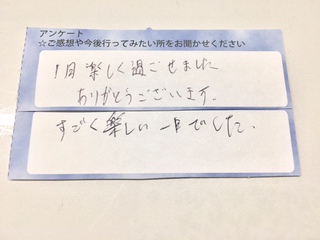 アンケート
☆ご感想や今後行ってみたい所をお聞かせください
1日楽しく過ごせました
ありがとうございます。
すごく楽しい一日でした。